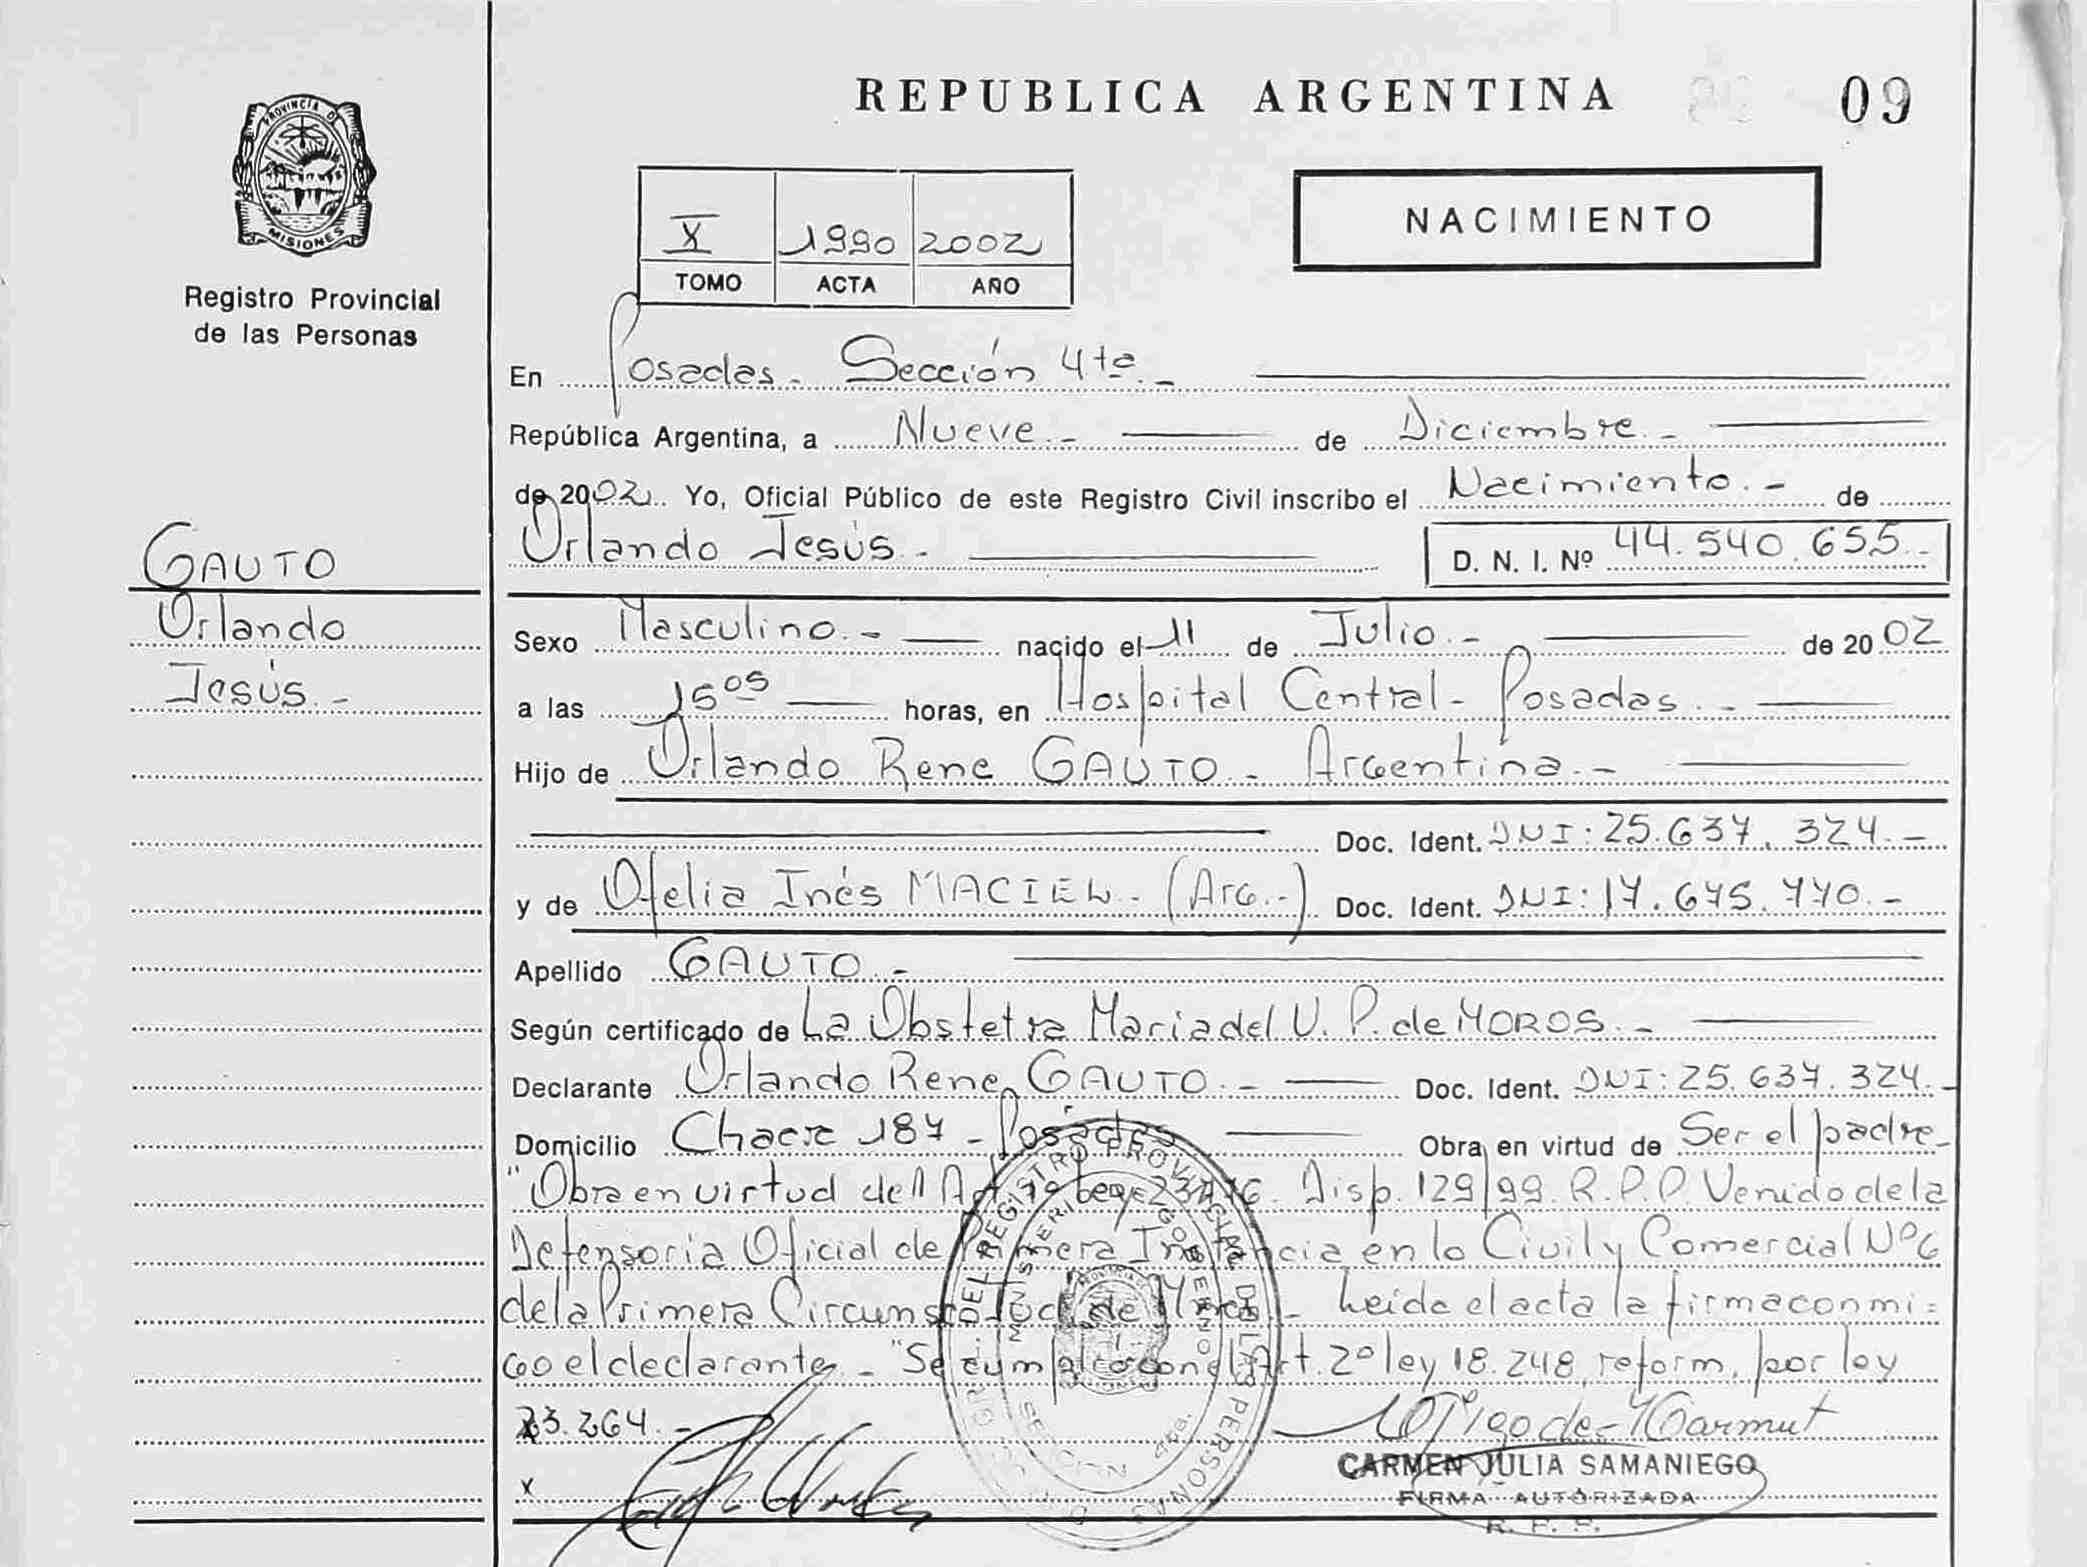 REPUBLICA ARGENTINA 09
PROVINCIA DE
MISIONES
Registro Provincial
de las Personas
X 1990 2002
TOMO ACTA AÑO
NACIMIENTO
En Posadas - Sección 4ta. -
República Argentina, a Nueve. - de Diciembre. -
de 2002. Yo, Oficial Público de este Registro Civil inscribo el Nacimiento. - de
Orlando Jesús. - D. N. I. Nº 44.540.655. -
GAUTO
Orlando
Jesús. -
Sexo Masculino. - nacido el 11 de Julio. - de 2002
a las 15 05 horas, en Hospital Central - Posadas. -
Hijo de Orlando Rene GAUTO - Argentina. -
Doc. Ident. DNI: 25.637.324. -
y de Ofelia Inés MACIEL. - (Arg. -) Doc. Ident. DNI: 17.675.770. -
Apellido GAUTO. -
Según certificado de La Obstetra Maria del U. P. de MOROS. -
Declarante Orlando Rene GAUTO. - Doc. Ident. DNI: 25.637.324. -
Domicilio Chacra 187 - Posadas Obra en virtud de Ser el padre -
"Obra en virtud del Disp. 129/99. R.P.P. Venido de la
Defensoria Oficial de Primera Instancia en lo Civil y Comercial Nº 6
de la Primera de Leida el acta la firma con mi =
go el declarante. - "Se Art. 2º ley 18.248, reform. por ley
23.264. -
X
CARMEN JULIA SAMANIEGO
FIRMA AUTORIZADA
R. P. P.